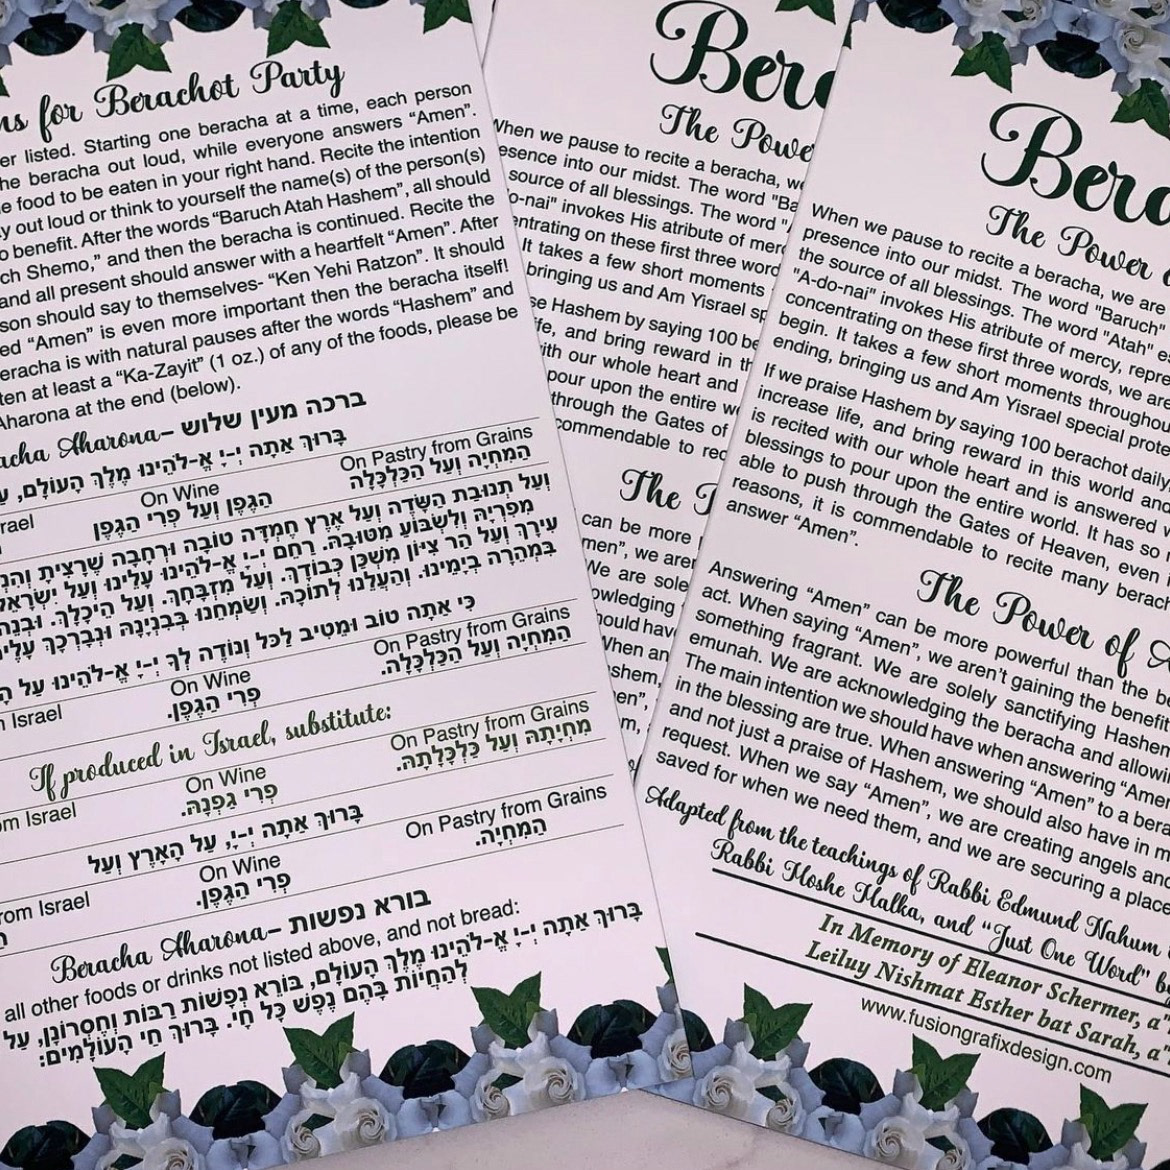 ns for Berachot Party
er listed. Starting one beracha at a time, each person
he beracha out loud, while everyone answers “Amen”.
e food to be eaten in your right hand. Recite the intention
y out loud or think to yourself the name(s) of the person(s)
o benefit. After the words “Baruch Atah Hashem”, all should
ch Shemo,” and then the beracha is continued. Recite the
and all present should answer with a heartfelt “Amen”. After
son should say to themselves- “Ken Yehi Ratzon”. It should
ed “Amen” is even more important then the beracha itself!
eracha is with natural pauses after the words “Hashem” and
ten at least a “Ka-Zayit” (1 oz.) of any of the foods, please be
Aharona at the end (below).
acha Aharona– ברכה מעין שלוש
בָּרוּךְ אַתָּה יְ-יָ אֱ-לֹהֵינוּ מֶלֶךְ הָעוֹלָם,
On Pastry from Grains
הַמִּחְיָה וְעַל הַכַּלְכָּלָה
On Wine
הַגֶּפֶן וְעַל פְּרִי הַגֶּפֶן
rael
וְעַל תְּנוּבַת הַשָּׂדֶה וְעַל אֶרֶץ חֶמְדָּה טוֹבָה וּרְחָבָה שֶׁרָצִיתָ
מִפִּרְיָהּ וְלִשְׂבּוֹעַ מִטּוּבָהּ. רַחֵם יְ-יָ אֱ-לֹהֵינוּ עָלֵינוּ וְעַל יִשְׂרָאֵל
עִירָךְ וְעַל הַר צִיּוֹן מִשְׁכַּן כְּבוֹדָךְ. וְעַל מִזְבָּחָךְ. וְעַל הֵיכָלָךְ.
בִּמְהֵרָה בְיָמֵינוּ. וְהַעֲלֵנוּ לְתוֹכָהּ. וְשַׂמְּחֵנוּ בְּבִנְיָנָהּ וּנְבָרְכָךְ
כִּי אַתָּה טוֹב וּמֵטִיב לַכֹּל וְנוֹדֶה לְךָ יְ-יָ אֱ-לֹהֵינוּ עַל
On Pastry from Grains
הַמִּחְיָה וְעַל הַכַּלְכָּלָה.
On Wine
פְּרִי הַגֶּפֶן.
n Israel
If produced in Israel, substitute:
On Pastry from Grains
מִחְיָתָהּ וְעַל כַּלְכָּלָתָהּ.
On Wine
פְּרִי גַפְנָהּ.
om Israel
בָּרוּךְ אַתָּה יְ-יָ, עַל הָאָרֶץ וְעַל
On Pastry from Grains
הַמִּחְיָה.
On Wine
פְּרִי הַגֶּפֶן.
rom Israel
Beracha Aharona– בורא נפשות
all other foods or drinks not listed above, and not bread:
בָּרוּךְ אַתָּה יְ-יָ אֱ-לֹהֵינוּ מֶלֶךְ הָעוֹלָם, בּוֹרֵא נְפָשׁוֹת רַבּוֹת וְחֶסְרוֹנָן, עַל
לְהַחֲיוֹת בָּהֶם נֶפֶשׁ כָּל חָי. בָּרוּךְ חֵי הָעוֹלָמִים:
Bera
The Powe
When we pause to recite a beracha, we
esence into our midst. The word "Ba
source of all blessings. The word "
o-nai" invokes His atribute of merc
entrating on these first three word
It takes a few short moments
bringing us and Am Yisrael sp
se Hashem by saying 100 be
fe, and bring reward in th
ith our whole heart and
pour upon the entire w
through the Gates of
commendable to rec
The
can be more
men”, we aren
We are sole
owledging
ould have
hen an
shem,
en”,
m,
Bera
The Power
When we pause to recite a beracha, we are
presence into our midst. The word "Baruch"
the source of all blessings. The word "Atah" es
"A-do-nai" invokes His atribute of mercy, repre
concentrating on these first three words, we are
begin. It takes a few short moments throughou
ending, bringing us and Am Yisrael special prote
If we praise Hashem by saying 100 berachot daily,
increase life, and bring reward in this world and
is recited with our whole heart and is answered w
blessings to pour upon the entire world. It has so
able to push through the Gates of Heaven, even
reasons, it is commendable to recite many berach
answer “Amen”.
The Power of A
Answering “Amen” can be more powerful than the be
act. When saying “Amen”, we aren’t gaining the benefit
something fragrant. We are solely sanctifying Hashem
emunah. We are acknowledging the beracha and allowin
The main intention we should have when answering “Amen
in the blessing are true. When answering “Amen” to a bera
and not just a praise of Hashem, we should also have in m
request. When we say “Amen”, we are creating angels and
saved for when we need them, and we are securing a place
Adapted from the teachings of Rabbi Edmund Nahum
Rabbi Moshe Malka, and “Just One Word” b
In Memory of Eleanor Schermer, a"
Leiluy Nishmat Esther bat Sarah, a"
www.fusiongrafixdesign.com